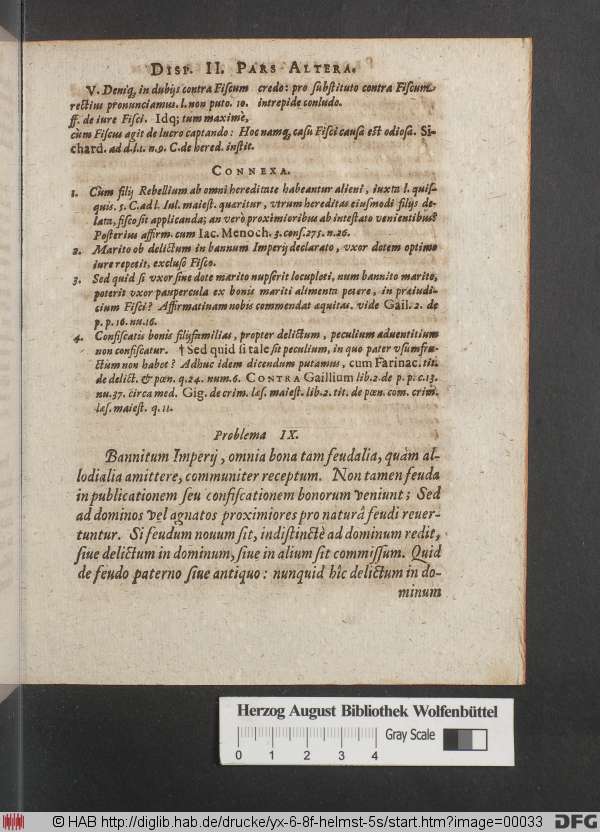 DISP. II. PARS ALTERA.
V. Deniq́, in dubijs contra Fiscum credo: pro substituto contra Fiscum
rectius pronunciamus. l. non puto. 10. intrepide concludo.
ff. de iure Fisci. Idq́; tum maximè,
cùm Fiscus agit de lucro captando: Hoc namq́, casu Fisci causa est odiosa. Si-
chard. ad d. l. 1. n. 9. C. de hered. instit.
CONNEXA.
1. Cùm filij Rebellium ab omni hereditate habeantur alieni, iuxta l. quis-
quis. 5. C. ad l. Iul. maiest. quæritur, vtrum hereditas eiusmodi filijs de-
lata, fisco sit applicanda; an verò proximioribus ab intestato venientibus?
Posterius affirm. cum Iac. Menoch. 3. cons. 275. n. 26.
2. Marito ob delictum in bannum Imperij declarato, vxor dotem optimo
iure repetit, excluso Fisco.
3. Sed quid si vxor sine dote marito nupserit locupleti, num bannito marito,
poterit vxor paupercula ex bonis mariti alimenta petere, in præiudi-
cium Fisci? Affirmatiuam nobis commendat æquitas. vide Gail. 2. de
p. p. 16. nu. 16.
4. Confiscatis bonis filijfamilias, propter delictum, peculium aduentitium
non confiscatur. † Sed quid si tale sit peculium, in quo pater vsumfru-
ctum non habet? Adhuc idem dicendum putamus, cum Farinac. tit.
de delict. & pœn. q. 24. num. 6. CONTRA Gaillium lib. 2. de p. p. c. 13.
nu. 37. circa med. Gig. de crim. læs. maiest. lib. 2. tit. de pœn. com. crim.
læs. maiest. q. 11.
Problema IX.
Bannitum Imperij, omnia bona tam feudalia, quàm al-
lodialia amittere, communiter receptum. Non tamen feuda
in publicationem seu confiscationem bonorum veniunt; Sed
ad dominos vel agnatos proximiores pro naturâ feudi reuer-
tuntur. Si feudum nouum sit, indistinctè ad dominum redit,
siue delictum in dominum, siue in alium sit commissum. Quid
de feudo paterno siue antiquo: nunquid hîc delictum in do-
minum
Herzog August Bibliothek Wolfenbüttel
Gray Scale
0 1 2 3 4
© HAB http://diglib.hab.de/drucke/yx-6-8f-helmst-5s/start.htm?image=00033
DFG